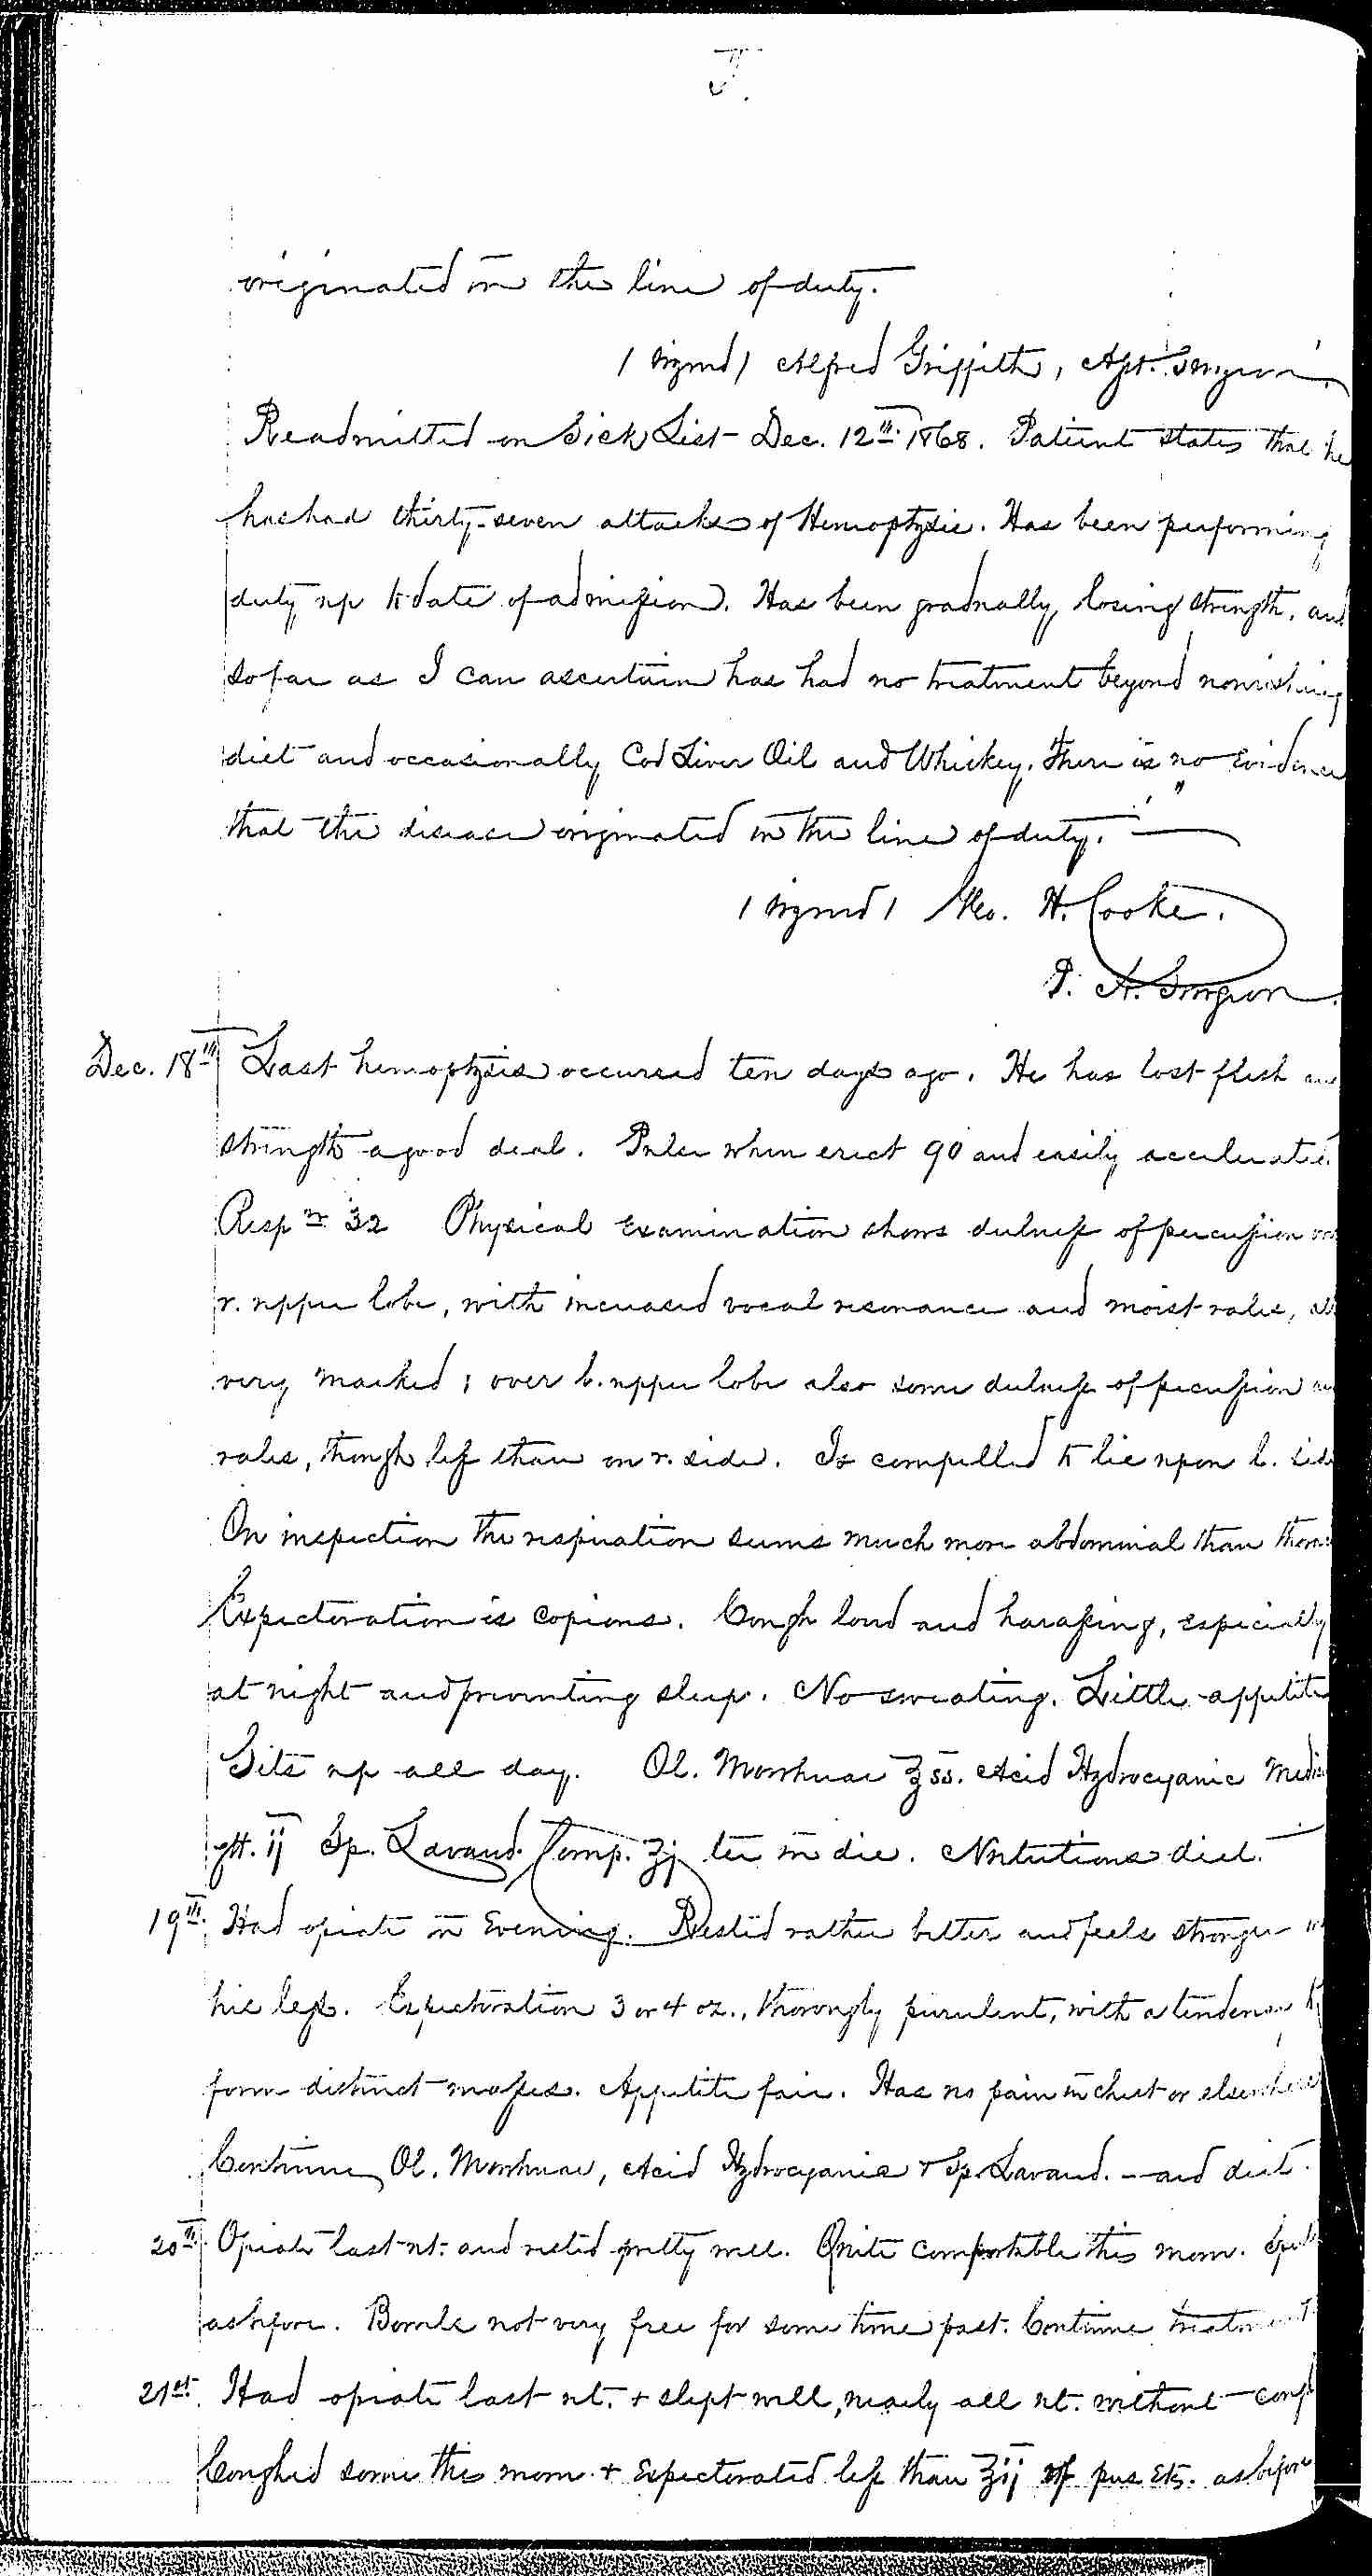 J.
originated in the line of duty.
(signed) Alfred Griffith, Asst. Surgeon.
Readmitted on Sick List Dec. 12th 1868. Patient states that he
has had thirty-seven attacks of Hemoptysis. Has been performing
duty up to date of admission. Has been gradually losing strength, and
so far as I can ascertain has had no treatment beyond nourishing
diet and occasionally Cod Liver Oil and Whiskey. "There is no evidence
that the disease originated in the line of duty."
(signed) Geo. H. Cooke.
P. A. Surgeon.
Dec. 18th Last hemoptysis occurred ten days ago. He has lost flesh and
strength a good deal. Pulse when erect 90 and easily accelerated.
Respn 32 Physical Examination shows dulness of percussion over
r. upper lobe, with increased vocal resonance and moist rales, all
very marked; over l. upper lobe also some dulness of percussion and
rales, though less than on r. side. Is compelled to lie upon l. side
On inspection the respiration seems much more abdominal than thoracic
Expectoration is copious. Cough loud and harassing, especially
at night and preventing sleep. No sweating. Little appetite
Sits up all day. Ol. Morrhuae ℥ss. Acid Hydrocyanic Medic
gtt. ij Sp. Lavand. Comp. ʒj ter in die. Nutritious diet.
19th. Had opiate in Evening. Rested rather better and feels stronger in
his legs. Expectoration 3 or 4 oz., thorougly purulent, with a tendency to
form distinct masses. Appetite fair. Has no pain in chest or elsewhere
Continue Ol. Morrhuae, Acid Hydrocyanic & Sp. Lavand. - and diet.
20th. Opiate last nt. and rested pretty well. Quite comfortable this morn. Sputa
as before. Bowels not very free for some time past. Continue treatment
21st. Had opiate last nt. & slept well, nearly all nt. without cough
Coughed some this morn. & Expectorated less than ℥ij of pus etc. as before